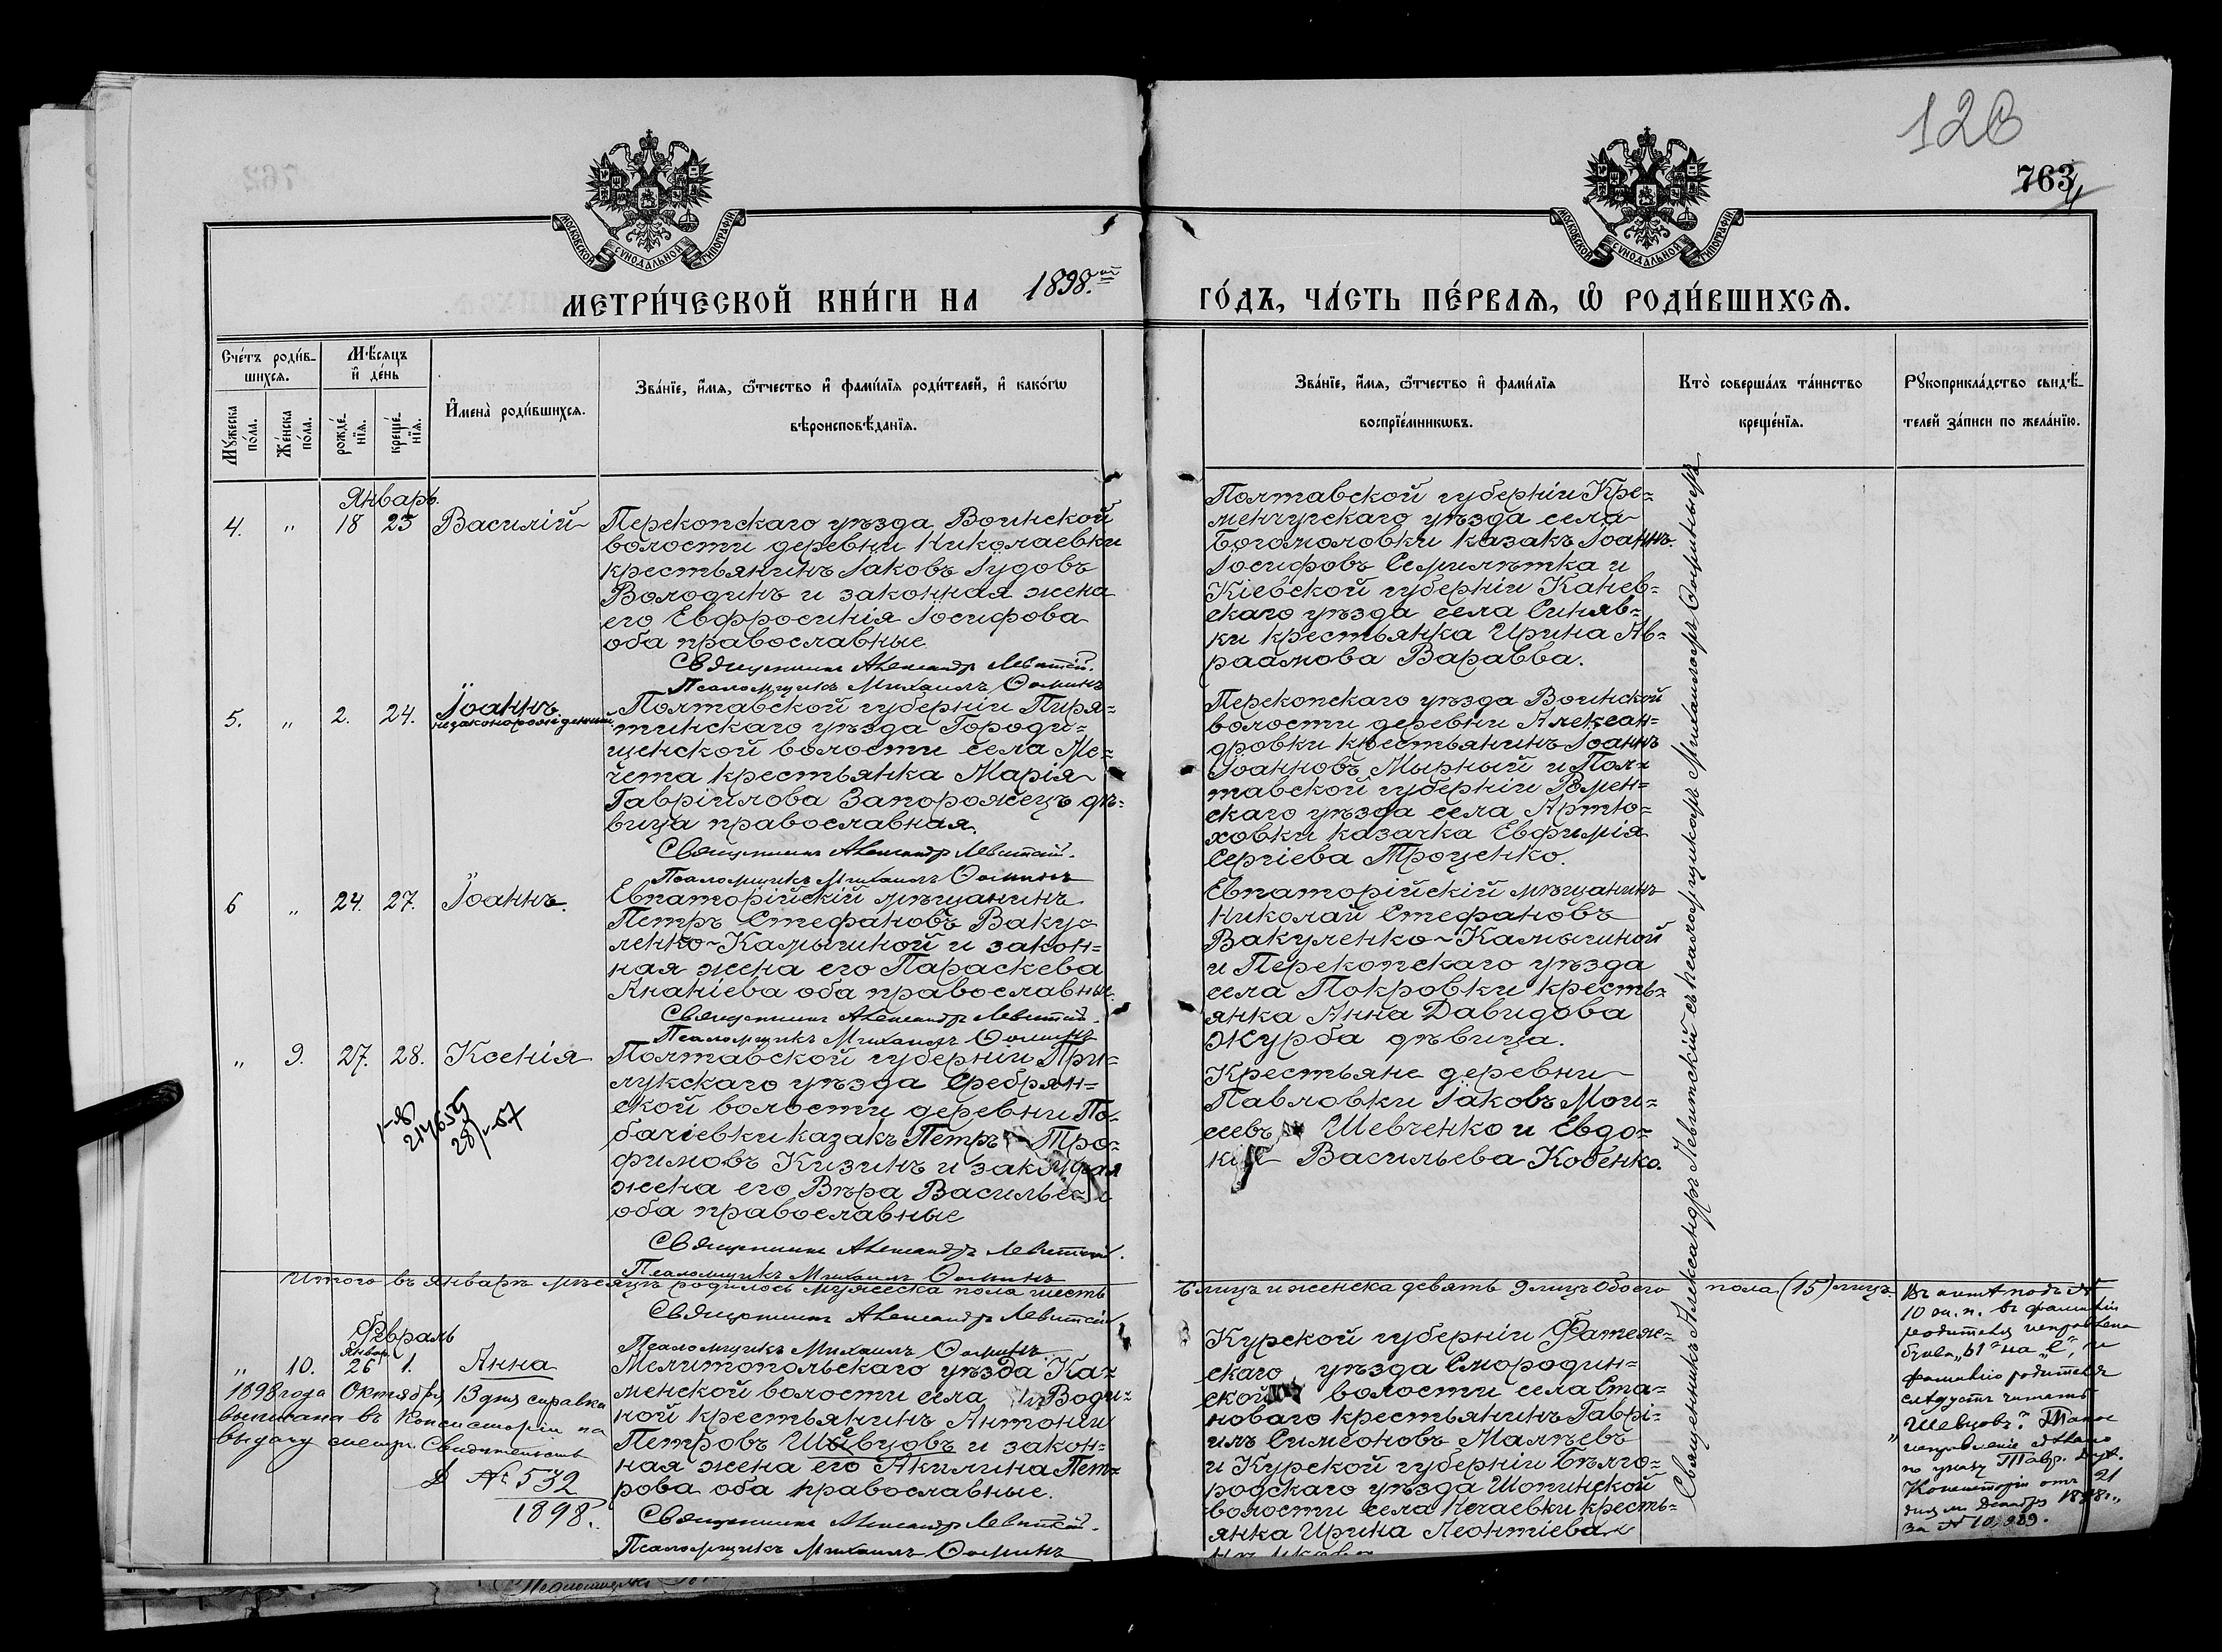 128
763
4
МОСКОВСКОЙ СѴНОДАЛЬНОЙ ТИПОГРАФІИ
МОСКОВСКОЙ СѴНОДАЛЬНОЙ ТИПОГРАФІИ
МЕТРИ́ЧЕСКОЙ КНИ́ГИ НА 1898.ый
ГО́ДЪ, ЧА́СТЬ ПЕ́РВАѦ, Ѡ҆ РОДИ́ВШИХСѦ.
Сче́тъ роди́в-
шихсѧ.
Мꙋ́жеска по́ла.
Же́нска по́ла.
Мѣ́сѧцъ
и҆ де́нь
рожде́-
нїѧ.
креще́-
нїѧ.
И҆мена̀ роди́вшихсѧ.
Зва́нїе, и҆́мѧ, ѻ҆́тчество и҆ фами́лїѧ роди́телей, и҆ како́гѡ
вѣроисповѣ́данїѧ.
Зва́нїе, и҆́мѧ, ѻ҆́тчество и҆ фами́лїѧ
воспрїе́мникѡвъ.
Кто̀ соверша́лъ та́инство
креще́нїѧ.
Рꙋкоприкла́дство свидѣ́-
телей за́писи по жела́нїю.
Январь.
4. „ 18 25 Василій
Перекопскаго уѣзда Воинской
волости деревни Николаевки
крестьянинъ Іаковъ Іудовъ
Володинъ и законная жена
его Евфросинія Іосифова
оба православные.
Священникъ Александръ Левитскій.
Псаломщикъ Михаилъ Ѳоминъ
Полтавской губерніи Кре-
менчугскаго уѣзда села
Богомоловки казакъ Іоаннъ
Іосифовъ Семилѣтка и
Кіевской губерніи Канев-
скаго уѣзда села Синяв-
ки крестьянка Ирина Ав-
раамова Варавва.
5. „ 2. 24. Іоаннъ
незаконорожденный
Полтавской губерніи Пиря-
тинскаго уѣзда Городи-
щенской волости села Ме-
чета крестьянка Марія
Гавріилова Запорожецъ дѣ-
вица православная.
Священникъ Александръ Левитскій.
Псаломщикъ Михаилъ Ѳоминъ
Перекопскаго уѣзда Воинской
волости деревни Алексан-
дровки крестьянинъ Іоаннъ
Іоанновъ Мырный и Пол-
тавской губерніи Ромен-
скаго уѣзда села Артю-
ховки казачка Евфимія
Сергіева Троценко.
6 „ 24. 27. Іоаннъ.
Евпаторійскій мѣщанинъ
Петръ Стефановъ Ваку-
ленко-Камышной и закон-
ная жена его Параскева
Ананіева оба православные.
Священникъ Александръ Левитскій.
Псаломщикъ Михаилъ Ѳоминъ
Евпаторійскій мѣщанинъ
Николай Стефановъ
Вакуленко-Камышной
и Перекопскаго уѣзда
села Покровки кресть-
янка Анна Давидова
Журба дѣвица.
„ 9. 27. 28. Ксенія
Полтавской губерніи При-
лукскаго уѣзда Сребрян-
ской волости деревни По-
бачіевки казакъ Петръ Тро-
фимовъ Кизинъ и законная
жена его Вѣра Васильева
оба православные
Священникъ Александръ Левитскій.
Псаломщикъ Михаилъ Ѳоминъ
Крестьяне деревни
Павловки Іаковъ Мои-
сеевъ Шевченко и Евдо-
кія Васильева Кобенко.
Итого въ январѣ мѣсяцѣ родилось мужеска пола шесть
6 лицъ и женска девять 9 лицъ обоего пола (15) лицъ.
Священникъ Александръ Левитскій
Псаломщикъ Михаилъ Ѳоминъ
Февраль
Январ.
„ 10. 26 1. Анна
Мелитопольскаго уѣзда Ка-
менской волости села Води-
ной крестьянинъ Антоній
Петровъ Шевцовъ и закон-
ная жена его Акилина Пет-
рова оба православные.
Священникъ Александръ Левитскій.
Псаломщикъ Михаилъ Ѳоминъ
1898 года Октября 13 дня справка
выписана въ Консисторіи на
выдачу метри. Свидѣтельств
№ 532
1898.
Курской губерніи Фатеж-
скаго уѣзда Смородин-
ской волости села Ста-
новаго крестьянинъ Гаврі-
илъ Симеоновъ Малѣевъ
и Курской губерніи Бѣлго-
родскаго уѣзда Шопинской
волости села Нечаевки кресть-
янка Ирина Леонтіева
Священникъ Александръ Левитскій съ псаломщикомъ Михаиломъ Ѳоминымъ
Въ актѣ подъ №
10 ж. п. въ фамиліи
родителя исправлена
буква „ы“ на „е“, и
фамилію родителя
слѣдуетъ читать
„Шевцовъ“. Такое
исправленіе сдѣлано
по указу Тавр. Дух.
Консисторіи отъ 21
дня м. Декабр 1898 г.,
за № 10,929.